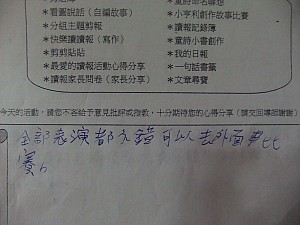 ＊看圖說話（自編故事）
＊分組主題剪報
＊快樂讀讀報（寫作）
＊剪剪貼貼
＊最愛的讀報活動心得分享
＊讀報家長問卷（家長分享）
＊小亨利創作故事比賽
＊讀報記錄簿
＊童詩小書創作
＊我的日報
＊一句話書籤
＊文章尋寶
今天的活動，請您不吝給予意見批評或指教，十分期待您的心得分享（請交回導師謝謝）
全部表演都不錯可以去外面事比
賽。